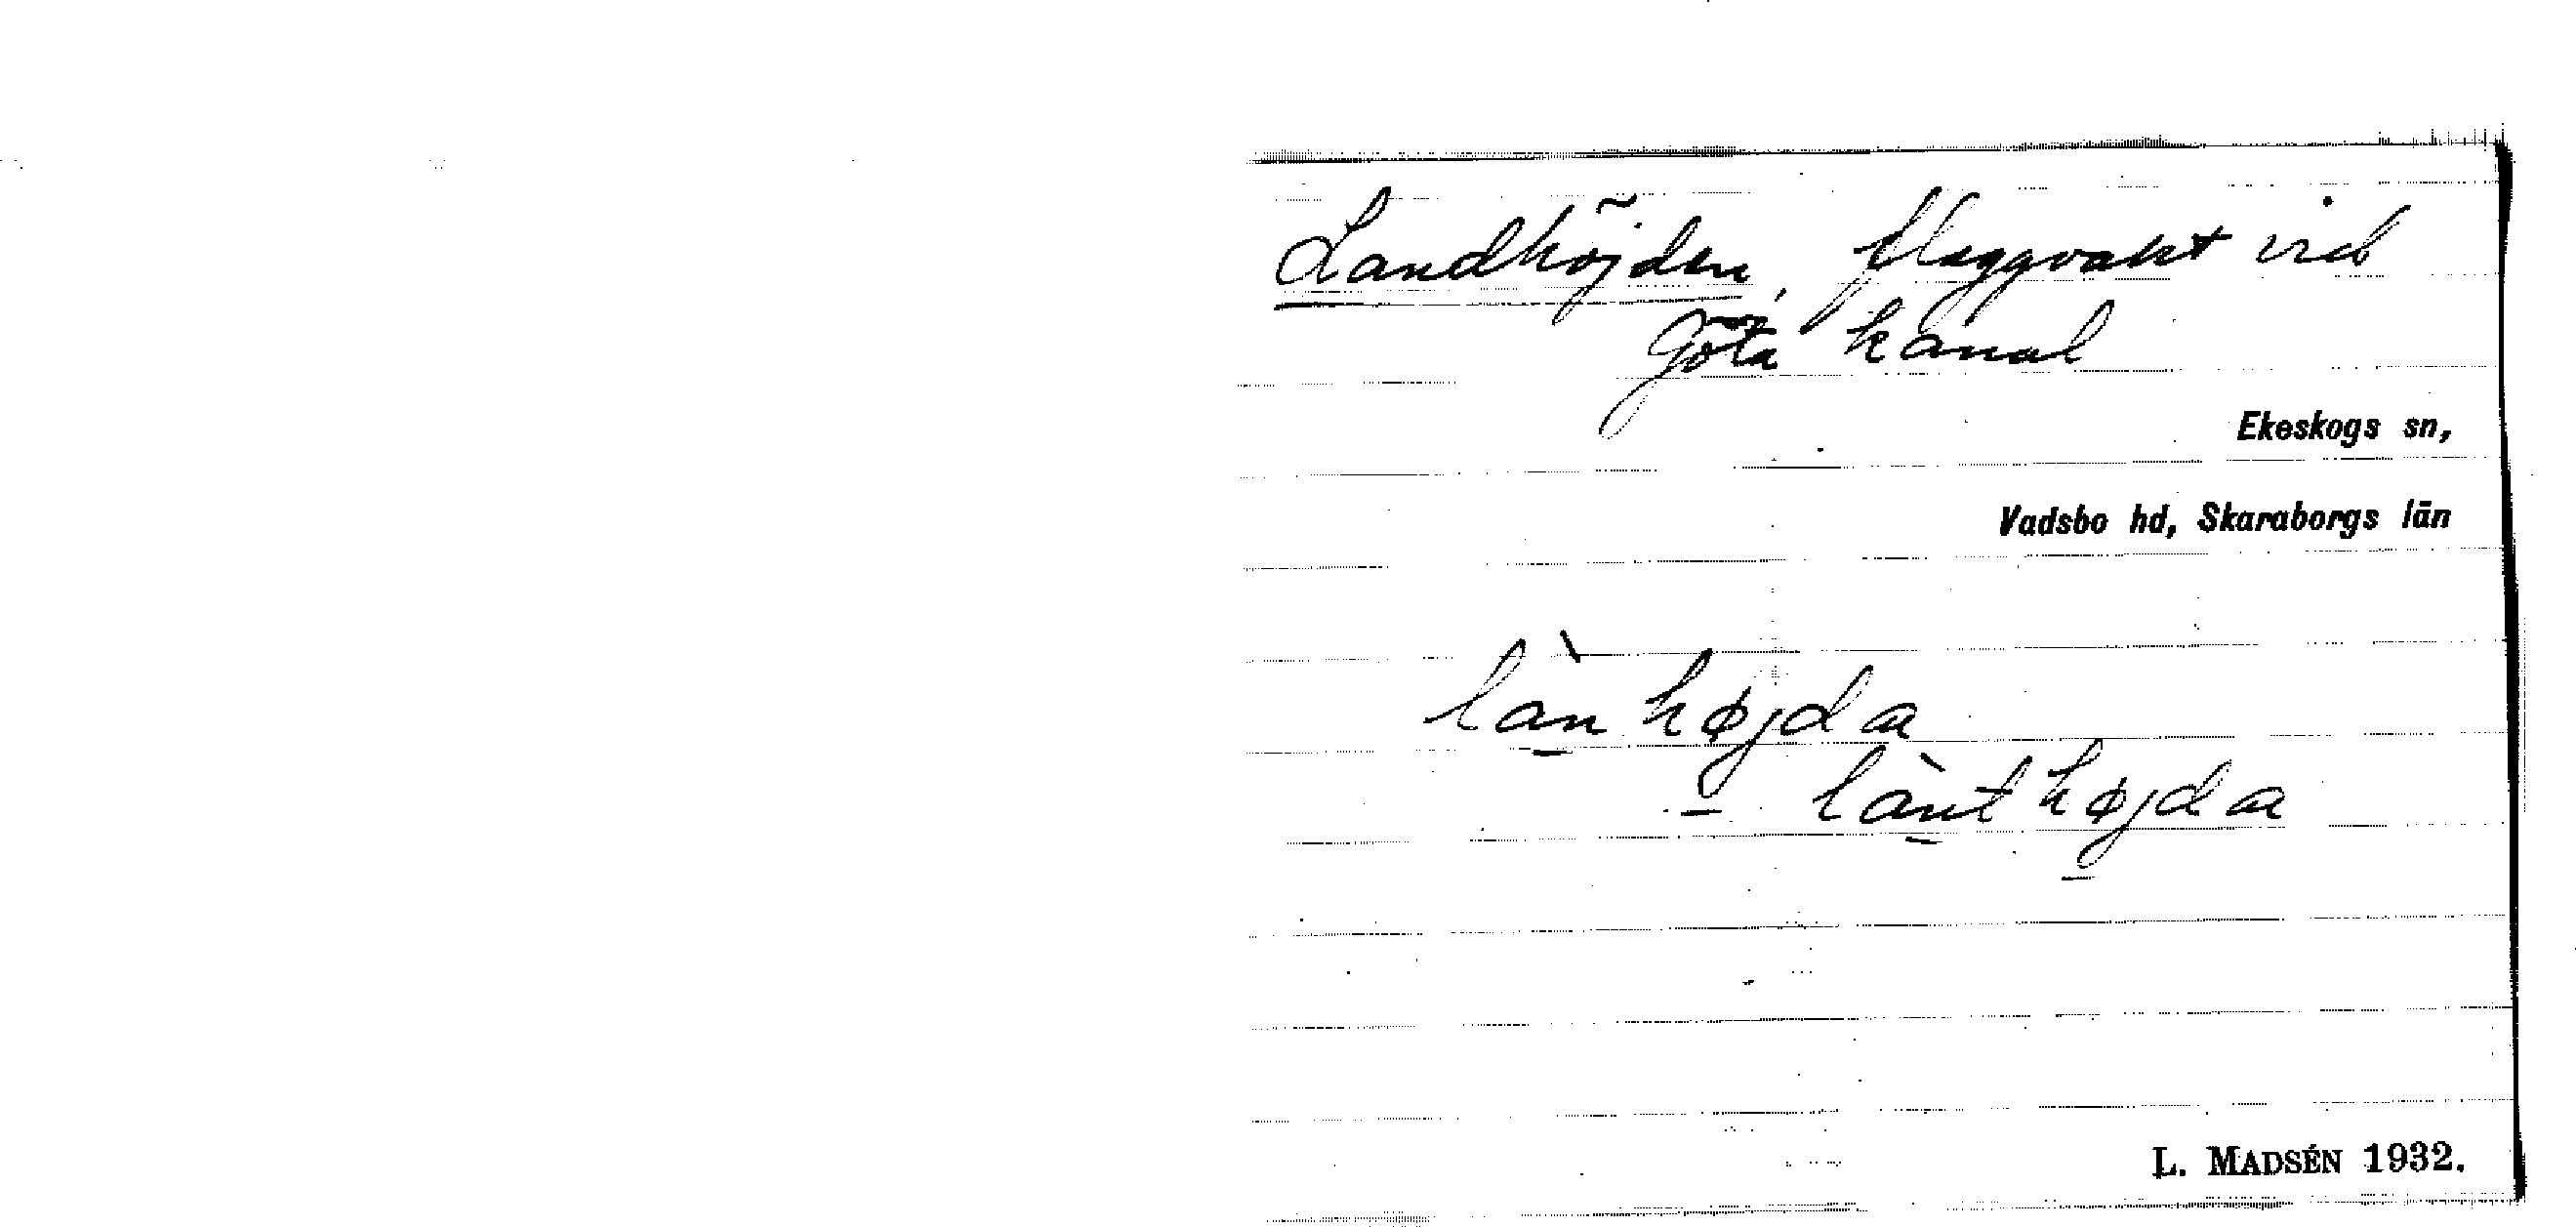 Landhöjden, flaggvakt vid
Göta kanal
Ekeskogs sn,
Vadsbo hd, Skaraborgs län
lànhøjda
lànthøjda
L. MADSÉN 1932.